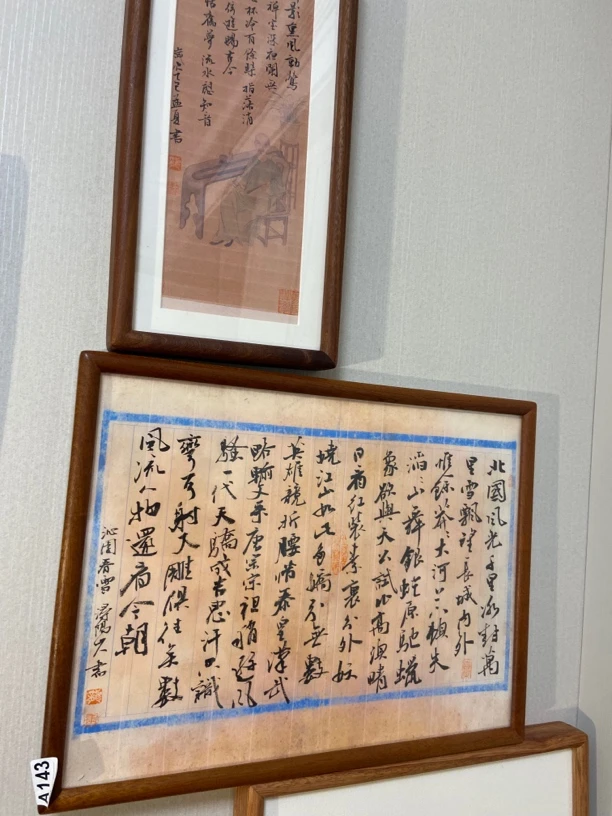 影重風動
流水 知音
書
北國風光千里冰封萬
里雪飄望長城内外
惟餘莽莽大河上下頓失
滔滔山舞銀蛇原馳蠟
象欲與天公試比高須晴
日看紅裝素裹分外妖
嬈江山如此多嬌引無數
英雄競折腰惜秦皇漢武
略輸文采唐宗宋祖稍遜風
騷一代天驕成吉思汗只識
彎弓射大雕俱往矣數
風流人物還看今朝
沁園春雪 書
A143